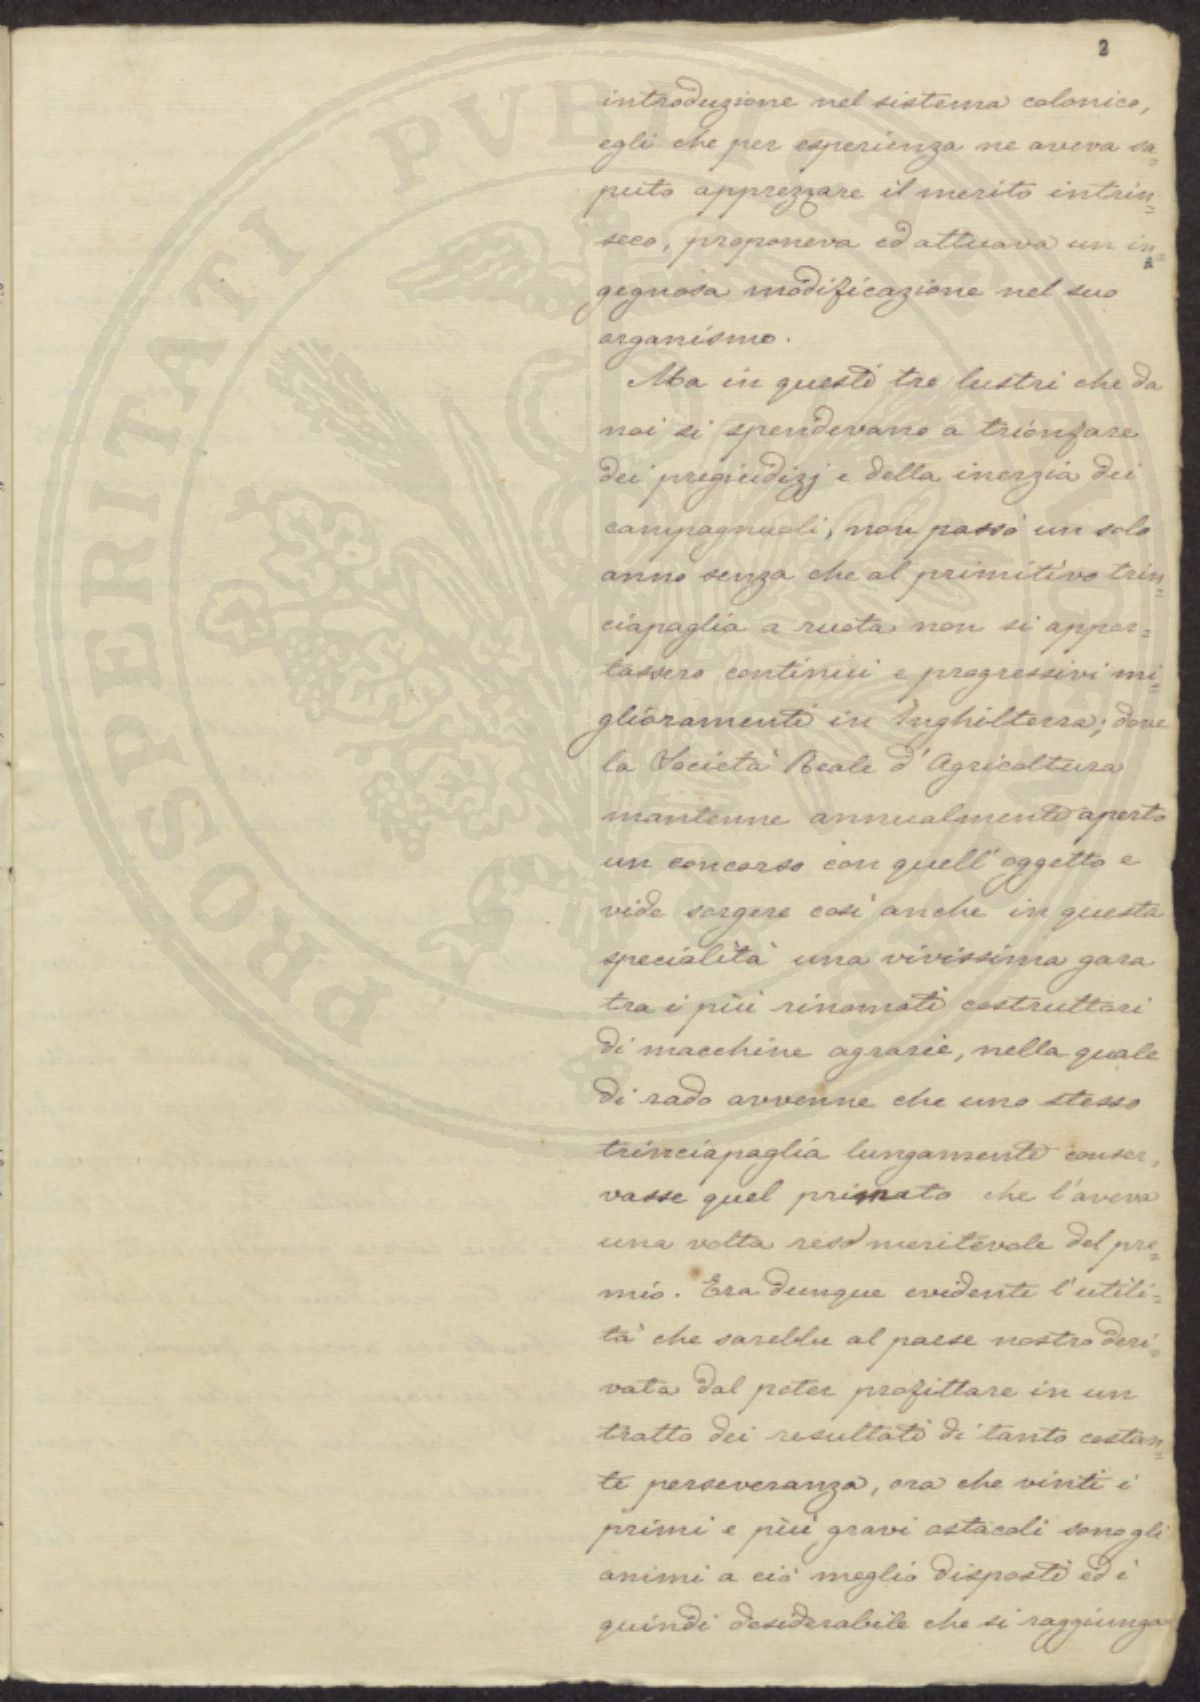 2
introduzione nel sistema colonico,
egli che per esperienza ne aveva sa=
puto apprezzare il merito intrin=
seco, proponeva ed attuava un in=
gegnosa modificazione nel suo
organismo.
Ma in questi tre lustri che da
noi si spendevano a trionfare
dei pregiudizj e della inerzia dei
campagnuoli, non passò un solo
anno senza che al primitivo trin=
ciapaglia a ruota non si appor=
tassero continui e progressivi mi=
glioramenti in Inghilterra; dove
la Società Reale d'Agricoltura
mantenne annualmente aperto
un concorso con quell'oggetto e
vide sorgere così anche in questa
specialità una vivissima gara
tra i più rinomati costruttori
di macchine agrarie, nella quale
di rado avvenne che uno stesso
trinciapaglia lungamente conser=
vasse quel primato che l'aveva
una volta reso meritevole del pre=
mio. Era dunque evidente l'utili=
tà che sarebbe al paese nostro deri=
vata dal poter profittare in un
tratto dei resultati di tanto costan=
te perseveranza, ora che vinti i
primi e più gravi ostacoli sono gli
animi a ciò meglio disposti ed è
quindi desiderabile che si raggiunga
PROSPERITATI PVBLICAE